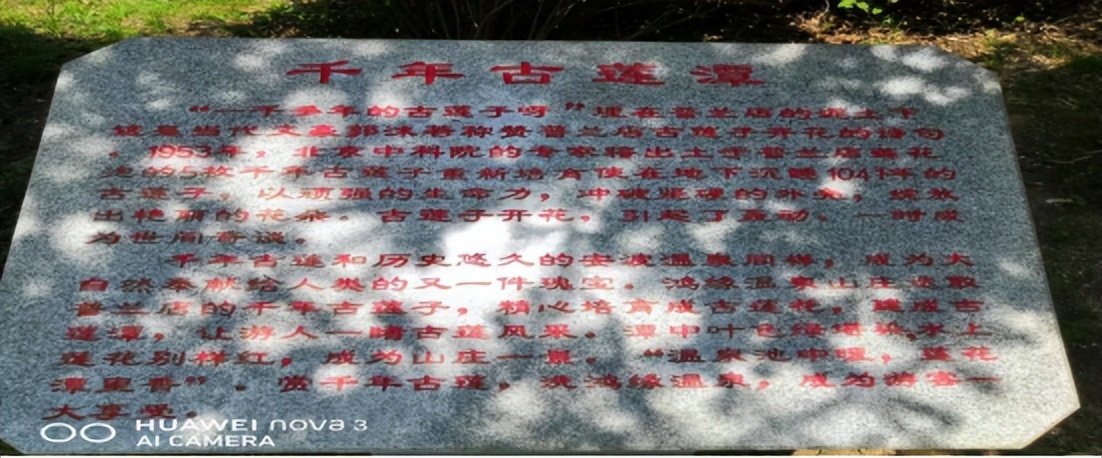 千年古莲潭
“一千多年的古莲子呀”埋在普兰店的泥土下
这是当代文豪郭沫若称赞普兰店古莲子开花的诗句
。1953年，北京中科院的专家将出土于普兰店莲花
泡的5枚千年古莲子重新培育使在地下沉睡1041年的
古莲子，以顽强的生命力，冲破坚硬的外壳，绽放
出艳丽的花朵。古莲子开花，引起了轰动。一时成
为世间奇谈。
千年古莲和历史悠久的安波温泉同样，成为大
自然奉献给人类的又一件瑰宝。鸿缘温泉山庄选取
普兰店的千年古莲子，精心培育成古莲花，建成古
莲潭，让游人一睹古莲风采。潭中叶色绿 水上
莲花别样红，成为山庄一景。“温泉池中暖，莲花
潭里香”。赏千年古莲，洗鸿缘温泉，成为游客一
大享受。
HUAWEI nova 3
AI CAMERA